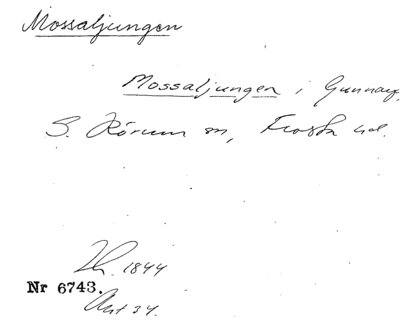 Mossaljungen
Mossaljungen i Gunnarp,
S. Rörum sn, Frosta hd.
1844
Nr 6743.
34.